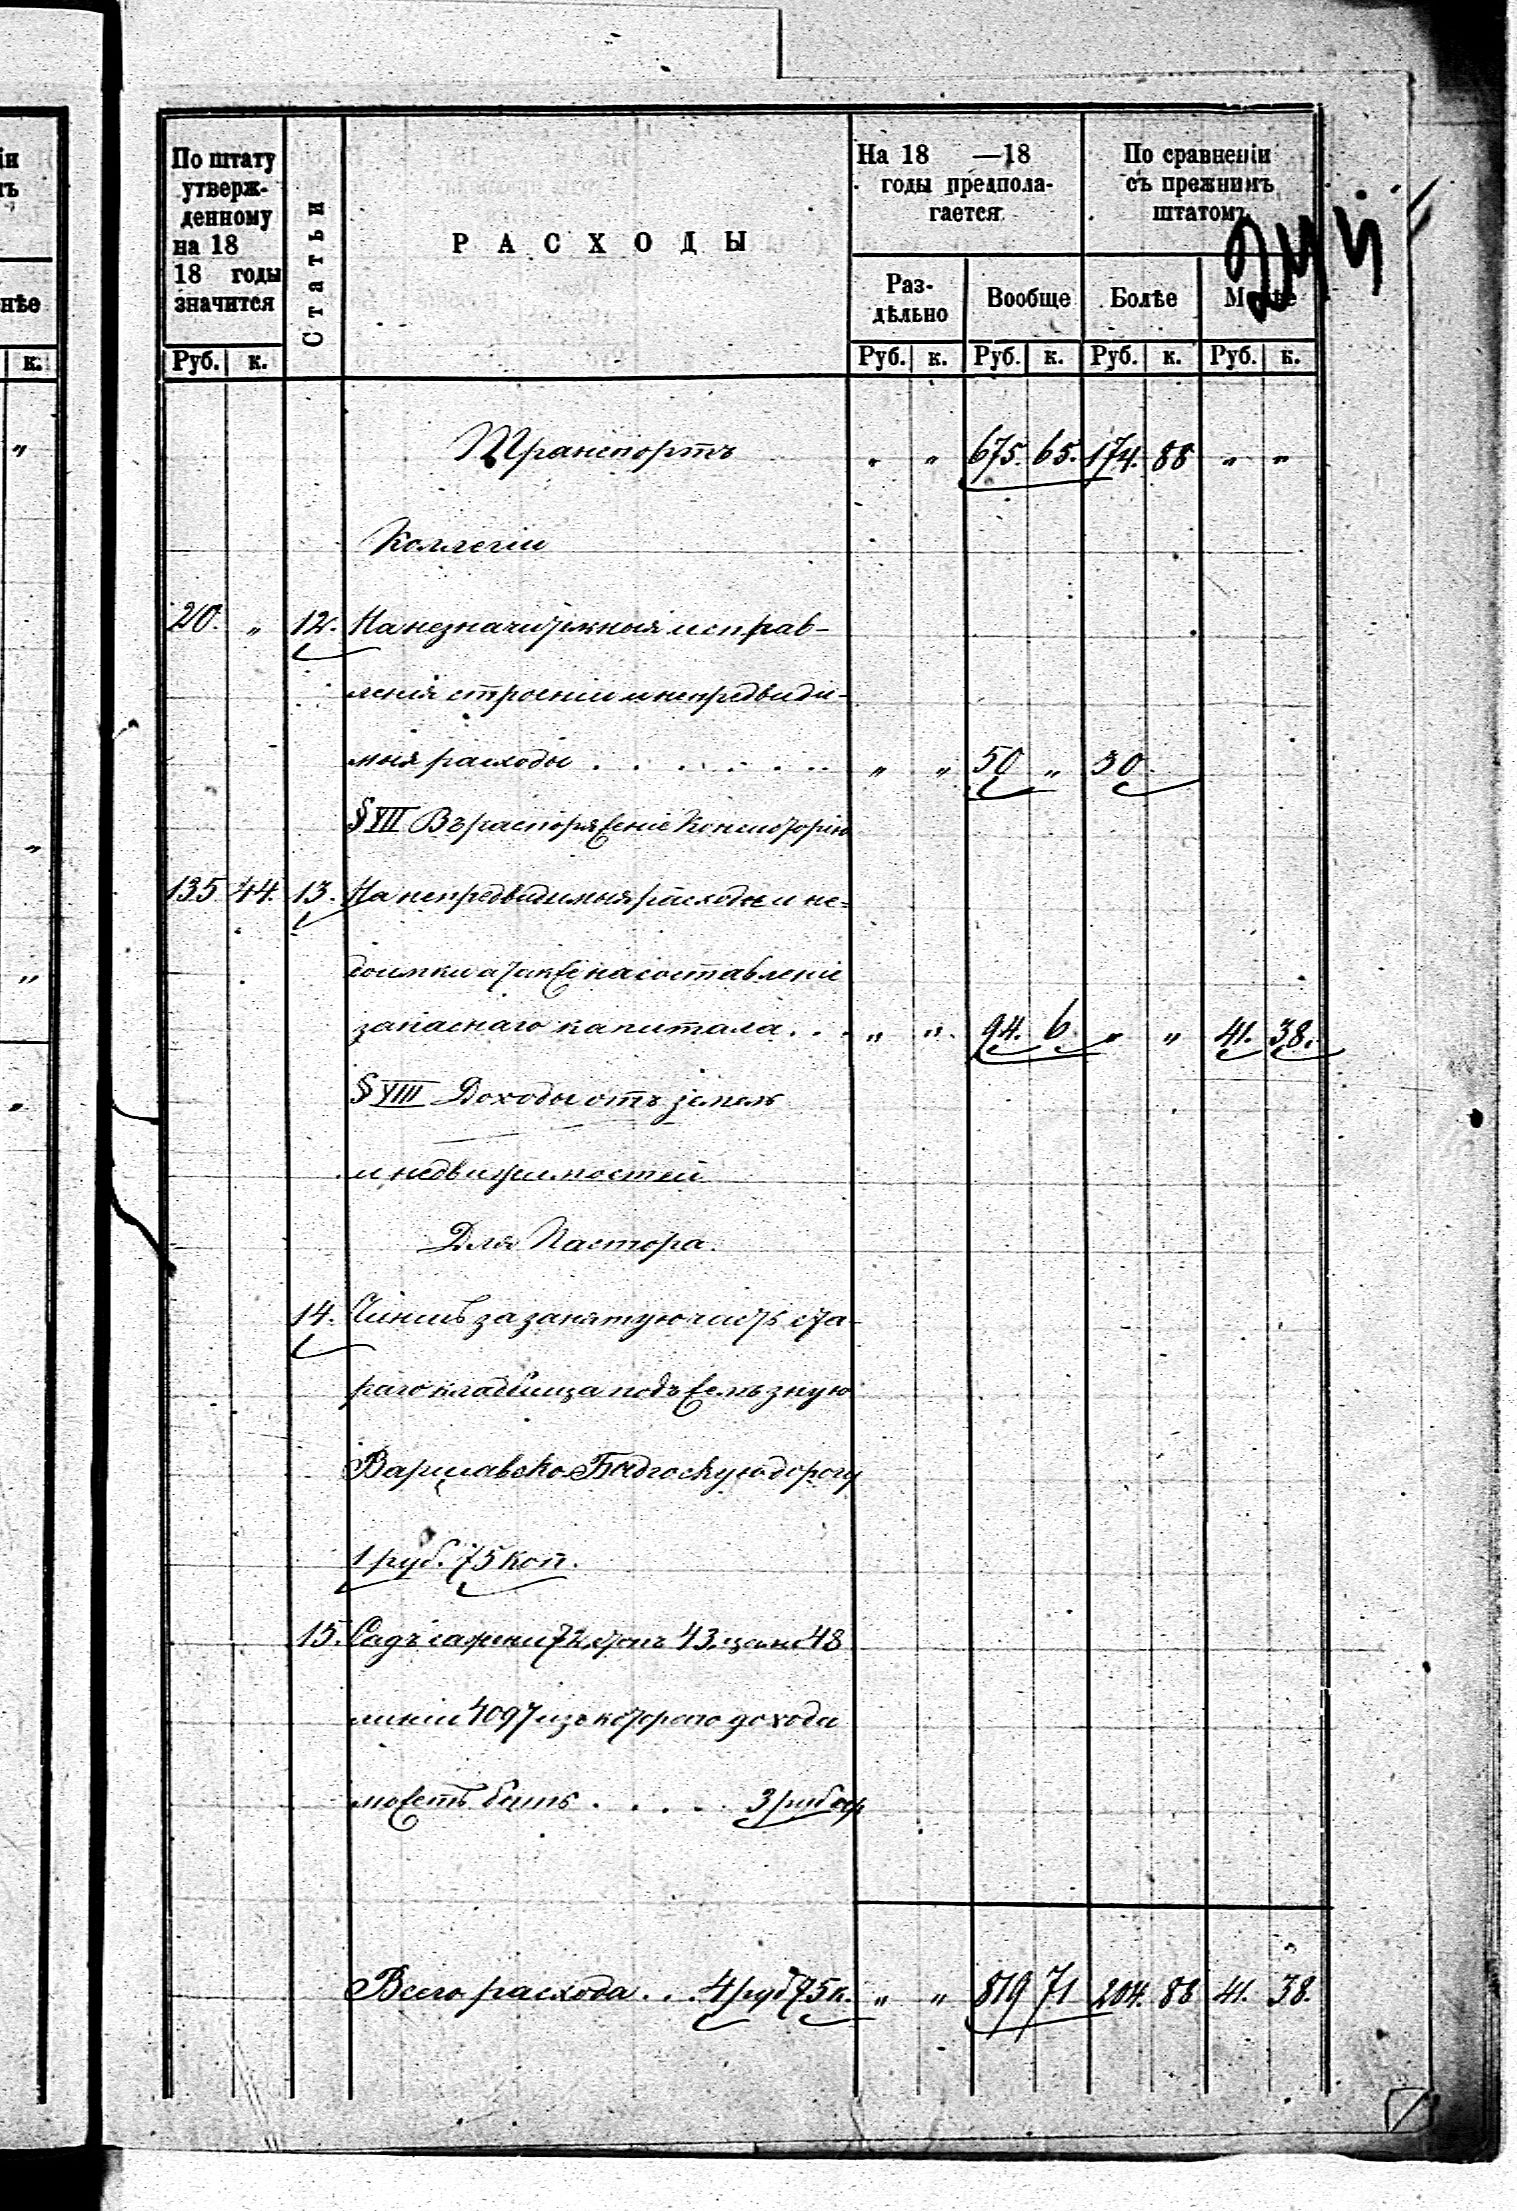 По штату утверж-
денному
на 18
18 годы
значится
Статьи
РАСХОДЫ
На 18 —18
годы предпола-
гается
По сравненіи
съ прежнимъ
штатомъ
Раз-
дѣльно
Вообще
Болѣе
Менѣе
Руб. к. Руб. к. Руб. к. Руб. к. Руб. к.
Транспортъ " " 675. 65. 174. 88 " "
Коллегіи
20. " 12. На незначительныя исправ-
ленія строеніи и непредвиди-
мыя расходы . . . . . . . " " 50 " 30
§ VII Въ распоряженіе Консисторіи
135 44. 13. На непредвидимыя расходы и не-
доимки а также на составленіе
запаснаго капитала . . . " " 94. 6 " " 41. 38.
§ VIII Доходы отъ земель
и недвижимостей
Для Пастора.
14. Чиншъ за занятую часть ста-
раго кладбища подъ желѣзную
Варшавско-Бдгоскую дорогу
1 руб. 75 коп.
15. Садъ сажени 72, стоп 43. цали 48
линіи 4097 изъ котораго дохода
можетъ быть . . . . . 3 руб
Всего расхода . . . 4 руб 75 к. " " 819 71 204. 88 41. 38.
ін
нѣе
к.